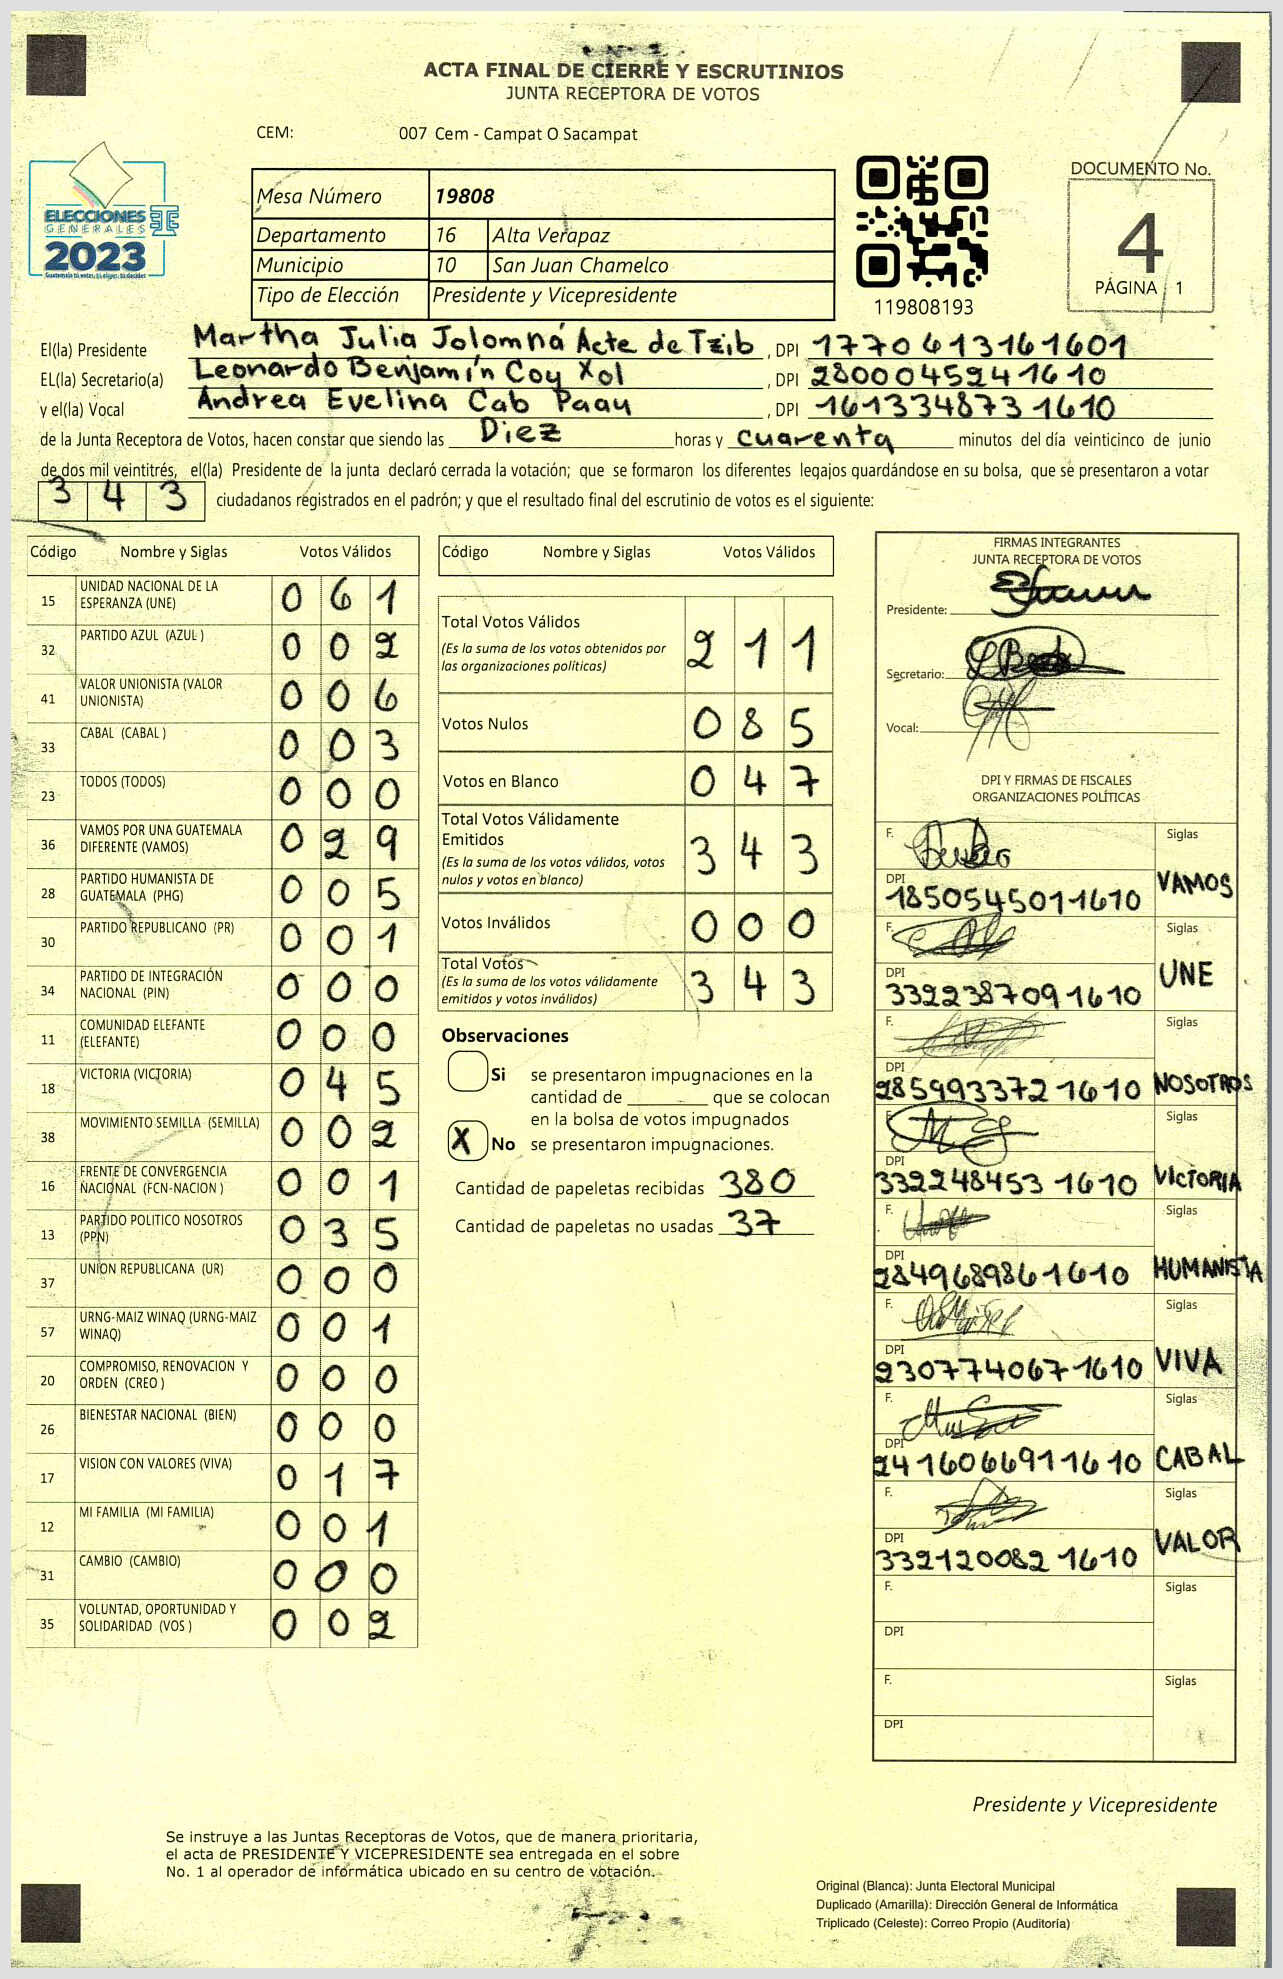 ACTA FINAL DE CIERRE Y ESCRUTINIOS
JUNTA RECEPTORA DE VOTOS
CEM: 007 Cem - Campat O Sacampat
ELECCIONES
GENERALES
2023
Mesa Número 19808
Departamento 16 Alta Verapaz
Municipio 10 San Juan Chamelco
Tipo de Elección Presidente y Vicepresidente
119808193
DOCUMENTO No.
4
PÁGINA 1
El(la) Presidente Martha Julia Jolomná Acte de Tzib, DPI 1770613161601
EL(la) Secretario(a) Leonardo Benjamín Coy Xol, DPI 2800045241610
y el(la) Vocal Andrea Evelina Cab Paau, DPI 1613348731610
de la Junta Receptora de Votos, hacen constar que siendo las Diez horas y cuarenta minutos del día veinticinco de junio
de dos mil veintitrés, el(la) Presidente de la junta declaró cerrada la votación; que se formaron los diferentes legajos quardándose en su bolsa, que se presentaron a votar
3 4 3 ciudadanos registrados en el padrón; y que el resultado final del escrutinio de votos es el siguiente:
Código Nombre y Siglas Votos Válidos
15 UNIDAD NACIONAL DE LA ESPERANZA (UNE) 0 6 1
32 PARTIDO AZUL (AZUL ) 0 0 2
41 VALOR UNIONISTA (VALOR UNIONISTA) 0 0 6
33 CABAL (CABAL ) 0 0 3
23 TODOS (TODOS) 0 0 0
36 VAMOS POR UNA GUATEMALA DIFERENTE (VAMOS) 0 2 9
28 PARTIDO HUMANISTA DE GUATEMALA (PHG) 0 0 5
30 PARTIDO REPUBLICANO (PR) 0 0 1
34 PARTIDO DE INTEGRACIÓN NACIONAL (PIN) 0 0 0
11 COMUNIDAD ELEFANTE (ELEFANTE) 0 0 0
18 VICTORIA (VICTORIA) 0 4 5
38 MOVIMIENTO SEMILLA (SEMILLA) 0 0 2
16 FRENTE DE CONVERGENCIA NACIONAL (FCN-NACION ) 0 0 1
13 PARTIDO POLITICO NOSOTROS (PPN) 0 3 5
37 UNION REPUBLICANA (UR) 0 0 0
57 URNG-MAIZ WINAQ (URNG-MAIZ WINAQ) 0 0 1
20 COMPROMISO, RENOVACION Y ORDEN (CREO ) 0 0 0
26 BIENESTAR NACIONAL (BIEN) 0 0 0
17 VISION CON VALORES (VIVA) 0 1 7
12 MI FAMILIA (MI FAMILIA) 0 0 1
31 CAMBIO (CAMBIO) 0 0 0
35 VOLUNTAD, OPORTUNIDAD Y SOLIDARIDAD (VOS ) 0 0 2
Código Nombre y Siglas Votos Válidos
Total Votos Válidos 2 1 1
(Es la suma de los votos obtenidos por las organizaciones políticas)
Votos Nulos 0 8 5
Votos en Blanco 0 4 7
Total Votos Válidamente Emitidos 3 4 3
(Es la suma de los votos válidos, votos nulos y votos en blanco)
Votos Inválidos 0 0 0
Total Votos 3 4 3
(Es la suma de los votos válidamente emitidos y votos inválidos)
Observaciones
Si se presentaron impugnaciones en la
cantidad de ________ que se colocan
en la bolsa de votos impugnados
X No se presentaron impugnaciones.
Cantidad de papeletas recibidas 380
Cantidad de papeletas no usadas 37
FIRMAS INTEGRANTES
JUNTA RECEPTORA DE VOTOS
Presidente:
Secretario:
Vocal:
DPI Y FIRMAS DE FISCALES
ORGANIZACIONES POLÍTICAS
F. Siglas
DPI 1850545011610 VAMOS
F. Siglas
DPI 3322387091610 UNE
F. Siglas
DPI 2859933721610 NOSOTROS
F. Siglas
DPI 3322484531610 VICTORIA
F. Siglas
DPI 2849689861610 HUMANISTA
F. Siglas
DPI 2307740671610 VIVA
F. Siglas
DPI 2416066911610 CABAL
F. Siglas
DPI 3321200821610 VALOR
F. Siglas
DPI
F. Siglas
DPI
Presidente y Vicepresidente
Se instruye a las Juntas Receptoras de Votos, que de manera prioritaria,
el acta de PRESIDENTE Y VICEPRESIDENTE sea entregada en el sobre
No. 1 al operador de informática ubicado en su centro de votación.
Original (Blanca): Junta Electoral Municipal
Duplicado (Amarilla): Dirección General de Informática
Triplicado (Celeste): Correo Propio (Auditoría)